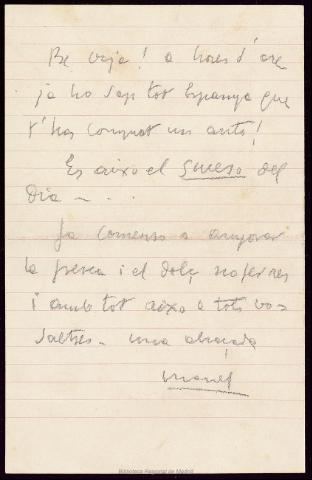 Be vaja! a hores d'ara
ja ho sap tot Espanya que
t'has comprat un auto!
Es aixo el suceso del
dia - . . .
Ja comenso a anyorar
la fresca i el dolç no fer res
i amb tot aixo a tots vo-
saltres - una abraçada
Biblioteca Regional de Madrid